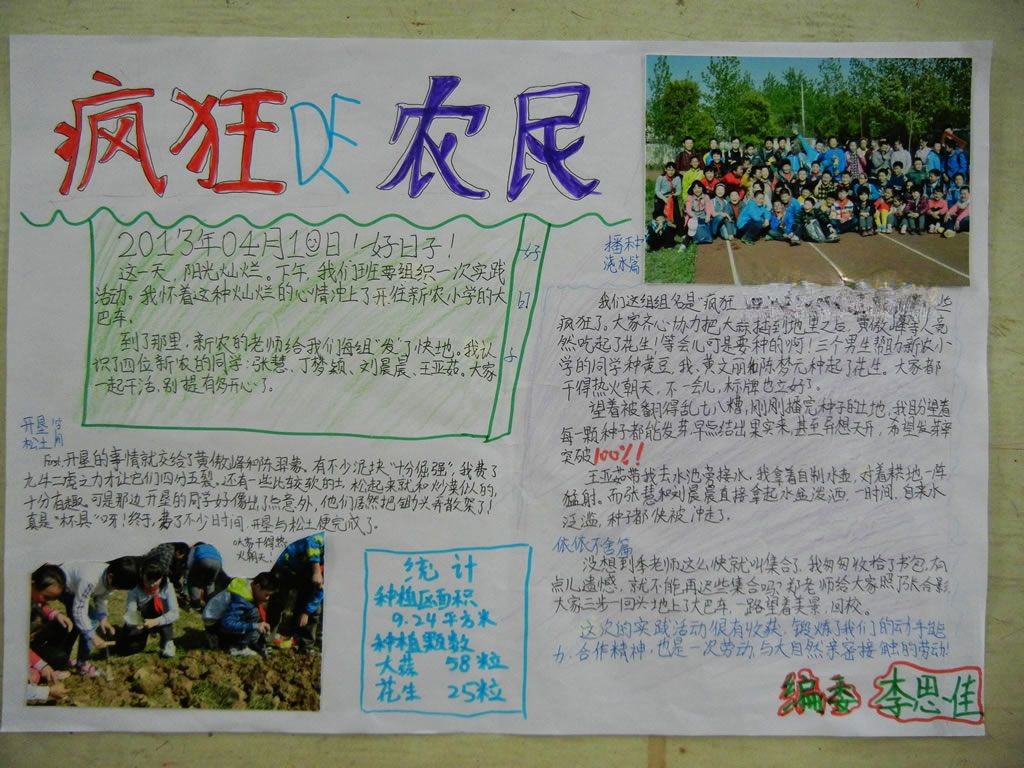 疯狂DE农民
2013年04月10日!好日子!
这一天,阳光灿烂。下午,我们班要组织一次实践
活动。我怀着这种灿烂的心情冲上了开往新农小学的大
巴车。
到了那里,新农的老师给我们每组"发"了快地。我认
识了四位新农的同学:张慧、丁梦颖、刘晨晨、王亚茹。大家
一起干活,别提有多开心了。
好
日
子
开垦
松土
篇
First,开垦的事情就交给了黄傲峰和陈羿蒙。有不少泥块"十分倔强",我费了
九牛二虎之力才让它们四分五裂。还有一些比较软的土,松起来就和炒菜似的,
十分有趣。可是那边开垦的同学好像出了点意外,他们居然把锄头弄散架了!
真是"杯具"呀!终于,费了不少时间,开垦与松土便完成了。
大家干得热
火朝天!
统计
种植区面积
9.24平方米
种植颗数
大蒜 58粒
花生 25粒
播种
浇水篇
我们这组组名是"疯狂
疯狂了。大家齐心协力把大蒜插到地里之后,黄傲峰等人竟
然吃起了花生!等会儿可是要种的啊!三个男生帮助新农小
学的同学种黄豆,我、黄文丽和陈梦元种起了花生。大家都
干得热火朝天,不一会儿,标牌也立好了。
望着被翻得乱七八糟,刚刚播完种子的土地,我盼望着
每一颗种子都能发芽早点结出果实来,甚至异想天开,希望发芽率
突破100%!
王亚茹带我去水池旁接水,我拿着自制水壶,对着耕地一阵
猛射。而张慧和刘晨晨直接拿起水盆泼洒,一时间,自来水
泛滥,种子都快被冲走了。
依依不舍篇
没想到季老师这么快就叫集合了,我匆匆收拾了书包,有
点儿遗憾,就不能再迟些集合吗?郑老师给大家照了张合影,
大家三步一回头地上了大巴车,一路望着美景,回校。
这次的实践活动很有收获,锻炼了我们的动手能
力、合作精神,也是一次劳动与大自然亲密接触的劳动!
编委 李思佳